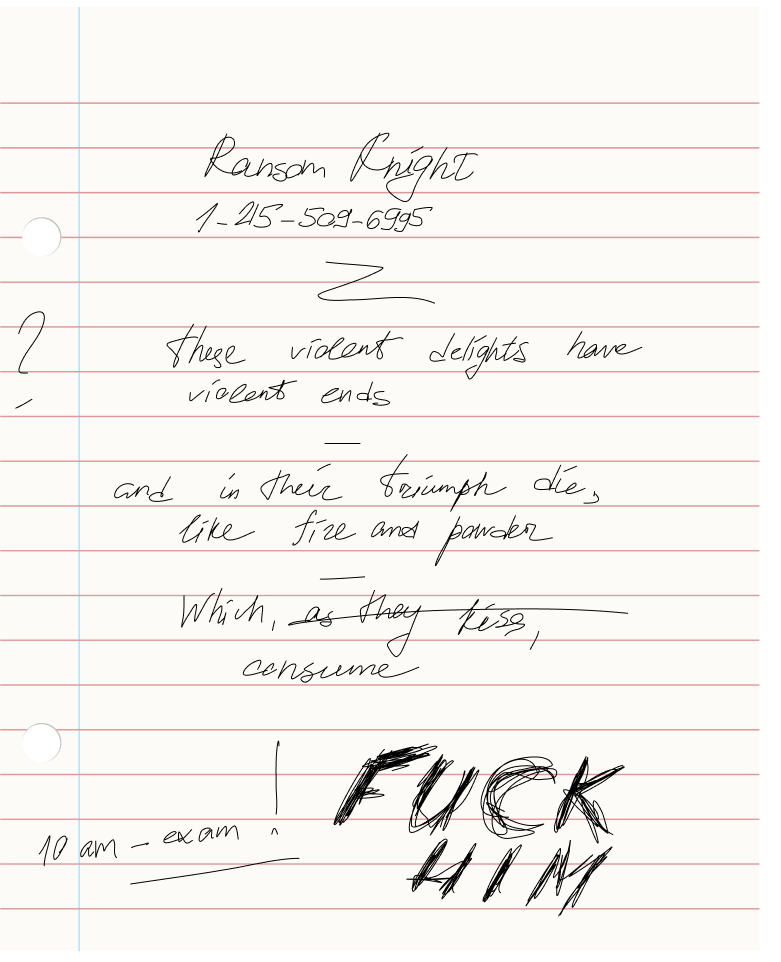 Ransom Knight
1-215-509-6995
? these violent delights have
violent ends
—
and in their triumph die,
like fire and powder
—
Which, as they kiss,
consume
FUCK
HIM
10 am - exam !